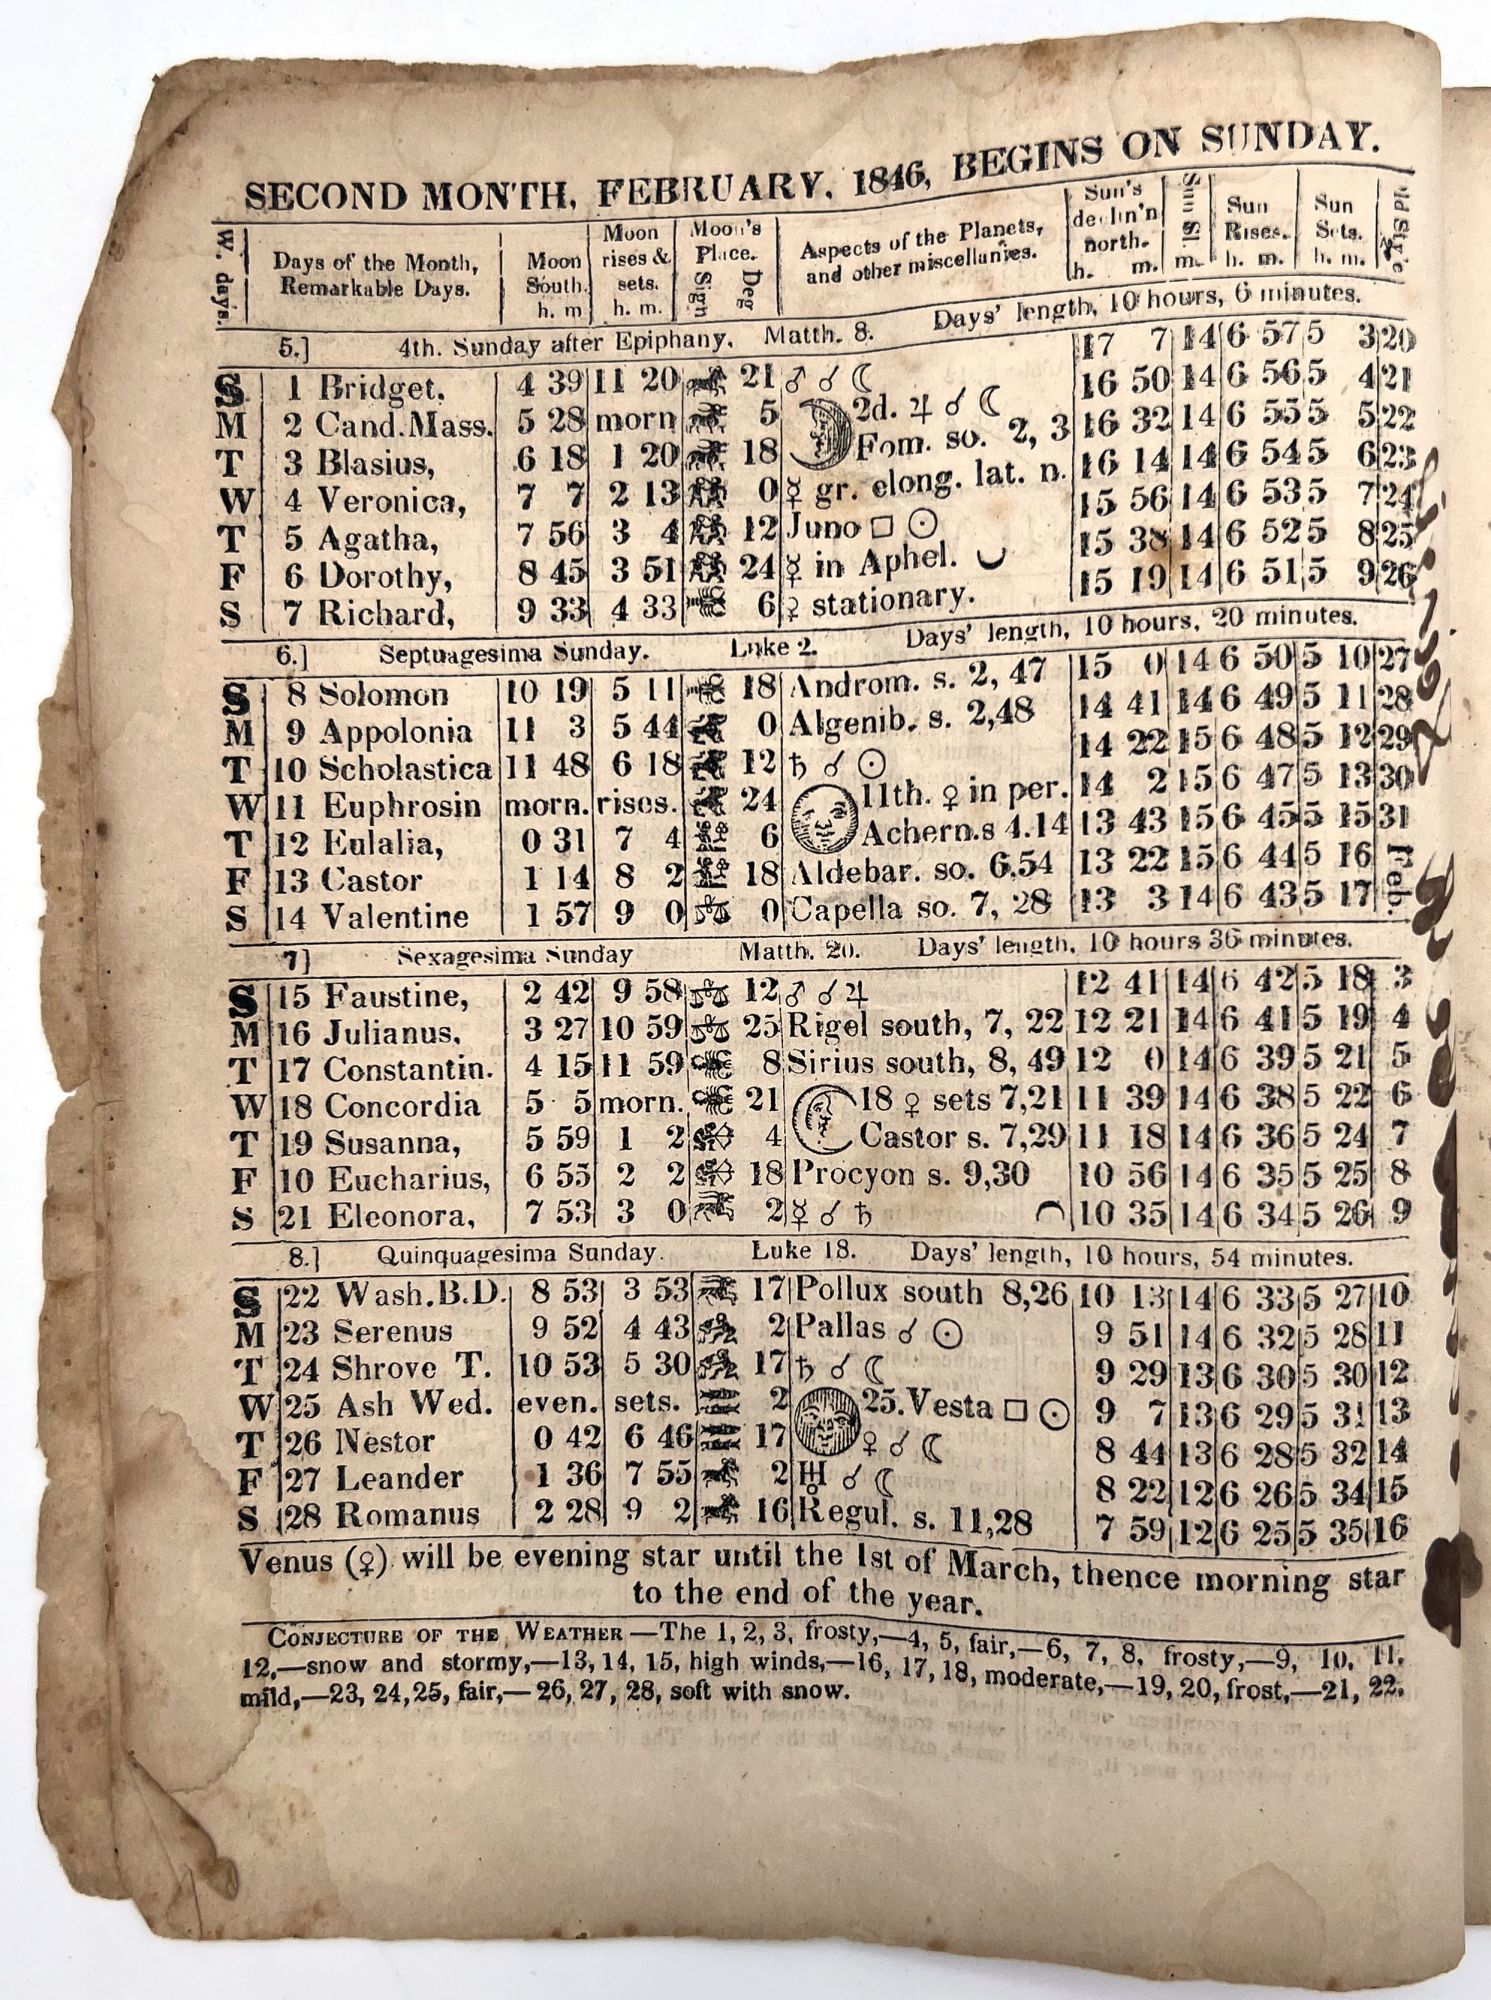 SECOND MONTH, FEBRUARY, 1846, BEGINS ON SUNDAY.
W. days. Days of the Month, Remarkable Days. Moon South. h. m Moon rises & sets. h. m. Moon's Place. Sign Deg Aspects of the Planets, and other miscellanies. Sun's declin'n north. h. m. Sun Sl. m. Sun Rises. h. m. Sun Sets. h. m. Old Style
5.] 4th. Sunday after Epiphany. Matth. 8. Days' length, 10 hours, 6 minutes.
S 1 Bridget, 4 39 11 20 21 ♂ ☌ ☾ 17 7 14 6 57 5 3 20
M 2 Cand.Mass. 5 28 morn 5 2d. ♃ ☌ ☾ 16 50 14 6 56 5 4 21
T 3 Blasius, 6 18 1 20 18 Fom. so. 2, 3 16 32 14 6 55 5 5 22
W 4 Veronica, 7 7 2 13 0 ☿ gr. elong. lat. n. 16 14 14 6 54 5 6 23
T 5 Agatha, 7 56 3 4 12 Juno □ ☉ 15 56 14 6 53 5 7 24
F 6 Dorothy, 8 45 3 51 24 ☿ in Aphel. 15 38 14 6 52 5 8 25
S 7 Richard, 9 33 4 33 6 ♀ stationary. 15 19 14 6 51 5 9 26
6.] Septuagesima Sunday. Luke 2. Days' length, 10 hours, 20 minutes.
S 8 Solomon 10 19 5 11 18 Androm. s. 2, 47 15 0 14 6 50 5 10 27
M 9 Appolonia 11 3 5 44 0 Algenib. s. 2,48 14 41 14 6 49 5 11 28
T 10 Scholastica 11 48 6 18 12 ♄ ☌ ☉ 14 22 15 6 48 5 12 29
W 11 Euphrosin morn. rises. 24 11th. ♀ in per. 14 2 15 6 47 5 13 30
T 12 Eulalia, 0 31 7 4 6 Achern.s 4.14 13 43 15 6 45 5 15 31
F 13 Castor 1 14 8 2 18 Aldebar. so. 6,54 13 22 15 6 44 5 16 Feb.
S 14 Valentine 1 57 9 0 0 Capella so. 7, 28 13 3 14 6 43 5 17
7] Sexagesima Sunday Matth. 20. Days' length, 10 hours 36 minutes.
S 15 Faustine, 2 42 9 58 12 ♂ ☌ ♃ 12 41 14 6 42 5 18 3
M 16 Julianus. 3 27 10 59 25 Rigel south, 7, 22 12 21 14 6 41 5 19 4
T 17 Constantin. 4 15 11 59 8 Sirius south, 8, 49 12 0 14 6 39 5 21 5
W 18 Concordia 5 5 morn. 21 18 ♀ sets 7,21 11 39 14 6 38 5 22 6
T 19 Susanna, 5 59 1 2 4 Castor s. 7,29 11 18 14 6 36 5 24 7
F 10 Eucharius, 6 55 2 2 18 Procyon s. 9,30 10 56 14 6 35 5 25 8
S 21 Eleonora, 7 53 3 0 2 ☿ ☌ ♄ 10 35 14 6 34 5 26 9
8.] Quinquagesima Sunday. Luke 18. Days' length, 10 hours, 54 minutes.
S 22 Wash.B.D. 8 53 3 53 17 Pollux south 8,26 10 13 14 6 33 5 27 10
M 23 Serenus 9 52 4 43 2 Pallas ☌ ☉ 9 51 14 6 32 5 28 11
T 24 Shrove T. 10 53 5 30 17 ♄ ☌ ☾ 9 29 13 6 30 5 30 12
W 25 Ash Wed. even. sets. 2 25. Vesta □ ☉ 9 7 13 6 29 5 31 13
T 26 Nestor 0 42 6 46 17 ♀ ☌ ☾ 8 44 13 6 28 5 32 14
F 27 Leander 1 36 7 55 2 ♅ ☌ ☾ 8 22 12 6 26 5 34 15
S 28 Romanus 2 28 9 2 16 Regul. s. 11,28 7 59 12 6 25 5 35 16
Venus (♀) will be evening star until the 1st of March, thence morning star
to the end of the year.
CONJECTURE OF THE WEATHER—The 1, 2, 3, frosty,—4, 5, fair,—6, 7, 8, frosty,—9, 10, 11,
12,—snow and stormy,—13, 14, 15, high winds,—16, 17, 18, moderate,—19, 20, frost,—21, 22,
mild,—23, 24, 25, fair,—26, 27, 28, soft with snow.